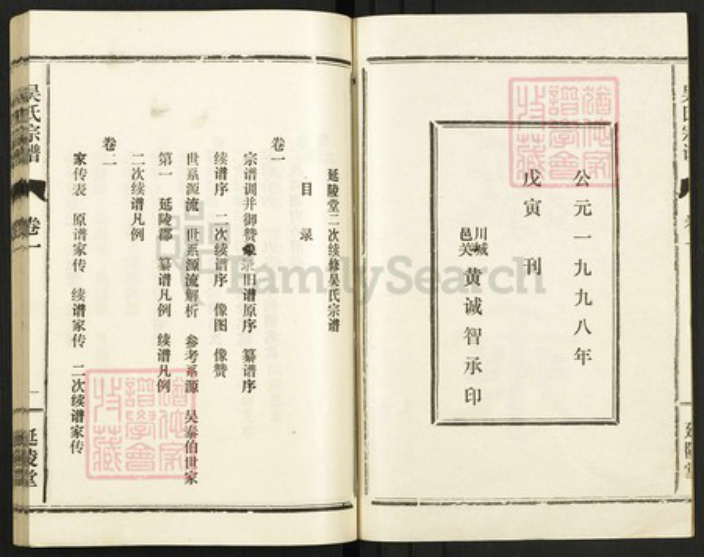 公元一九九八年
戊寅 刊
川城
邑关
黄诚智承印
延陵堂二次续修吴氏宗谱
目 录
卷一
宗谱训并御赞 旧谱原序 纂谱序
续谱序 二次续谱序 像图 像赞
世系源流 世系源流解析 参考系源 吴泰伯世家
第一 延陵郡 纂谱凡例 续谱凡例
二次续谱凡例
卷二
家传表 原谱家传 续谱家传 二次续谱家传
吴氏宗谱 卷一 一 延陵堂
FamilySearch